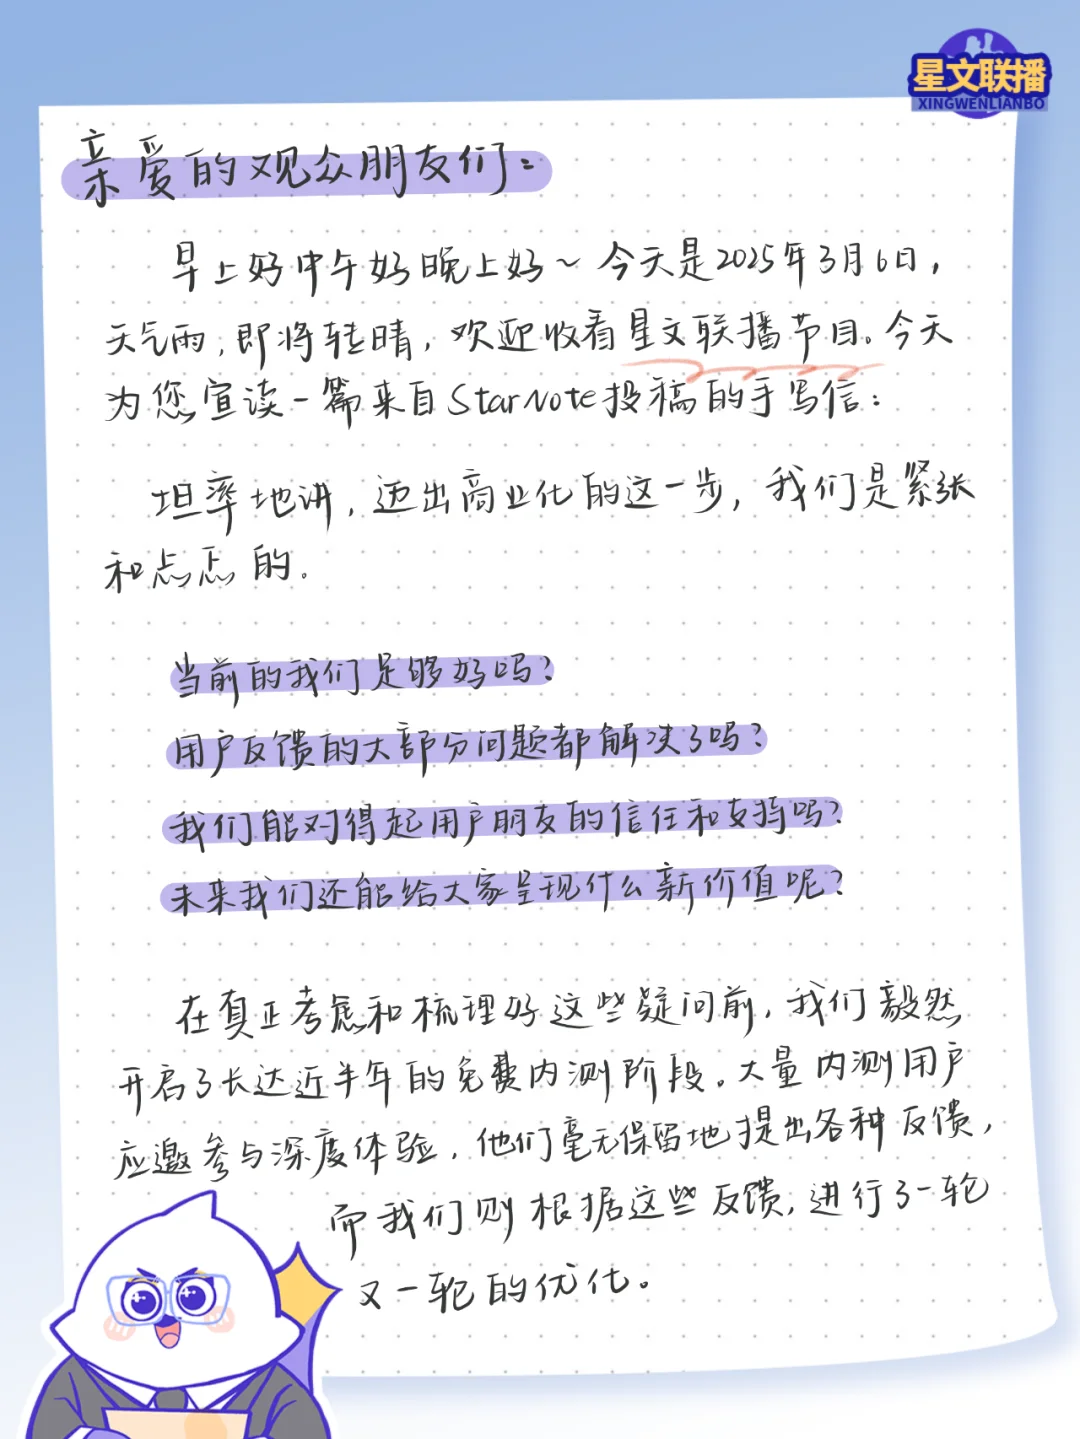 星文联播
XINGWENLIANBO
亲爱的观众朋友们：
早上好中午好晚上好～今天是2025年3月6日，
天气雨，即将转晴，欢迎收看星文联播节目。今天
为您宣读一篇来自StarNote投稿的手写信：
坦率地讲，迈出商业化的这一步，我们是紧张
和忐忑的。
当前的我们足够好吗？
用户反馈的大部分问题都解决了吗？
我们能对得起用户朋友的信任和支持吗？
未来我们还能给大家呈现什么新价值呢？
在真正考虑和梳理好这些疑问前，我们毅然
开启了长达近半年的免费内测阶段。大量内测用户
应邀参与深度体验，他们毫无保留地提出各种反馈，
而我们则根据这些反馈，进行了一轮
又一轮的优化。